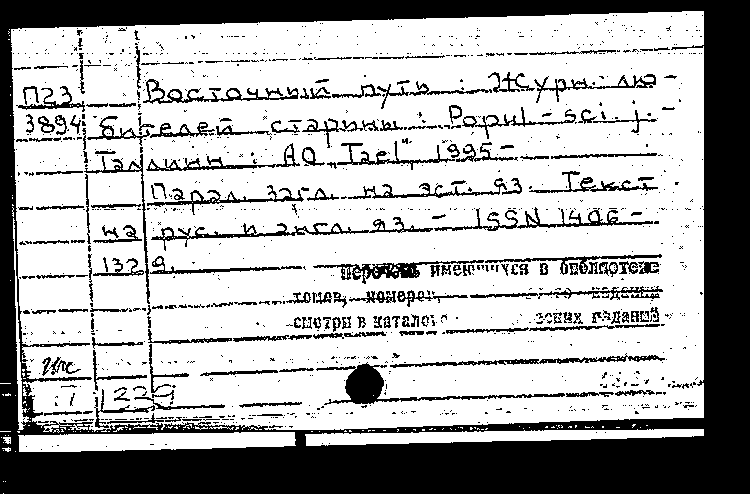 П23 Восточный путь : Журн. лю-
3894 бителей старины : Popul-sci. j. -
Таллинн : АО "Tael", 1995-
Парал. загл. на эст. яз. Текст
на рус. и англ. яз. - ISSN 1406-
1329.
Перечень имеющихся в библиотеке
томов, номеров, издания
смотри в каталоге изданий
1339